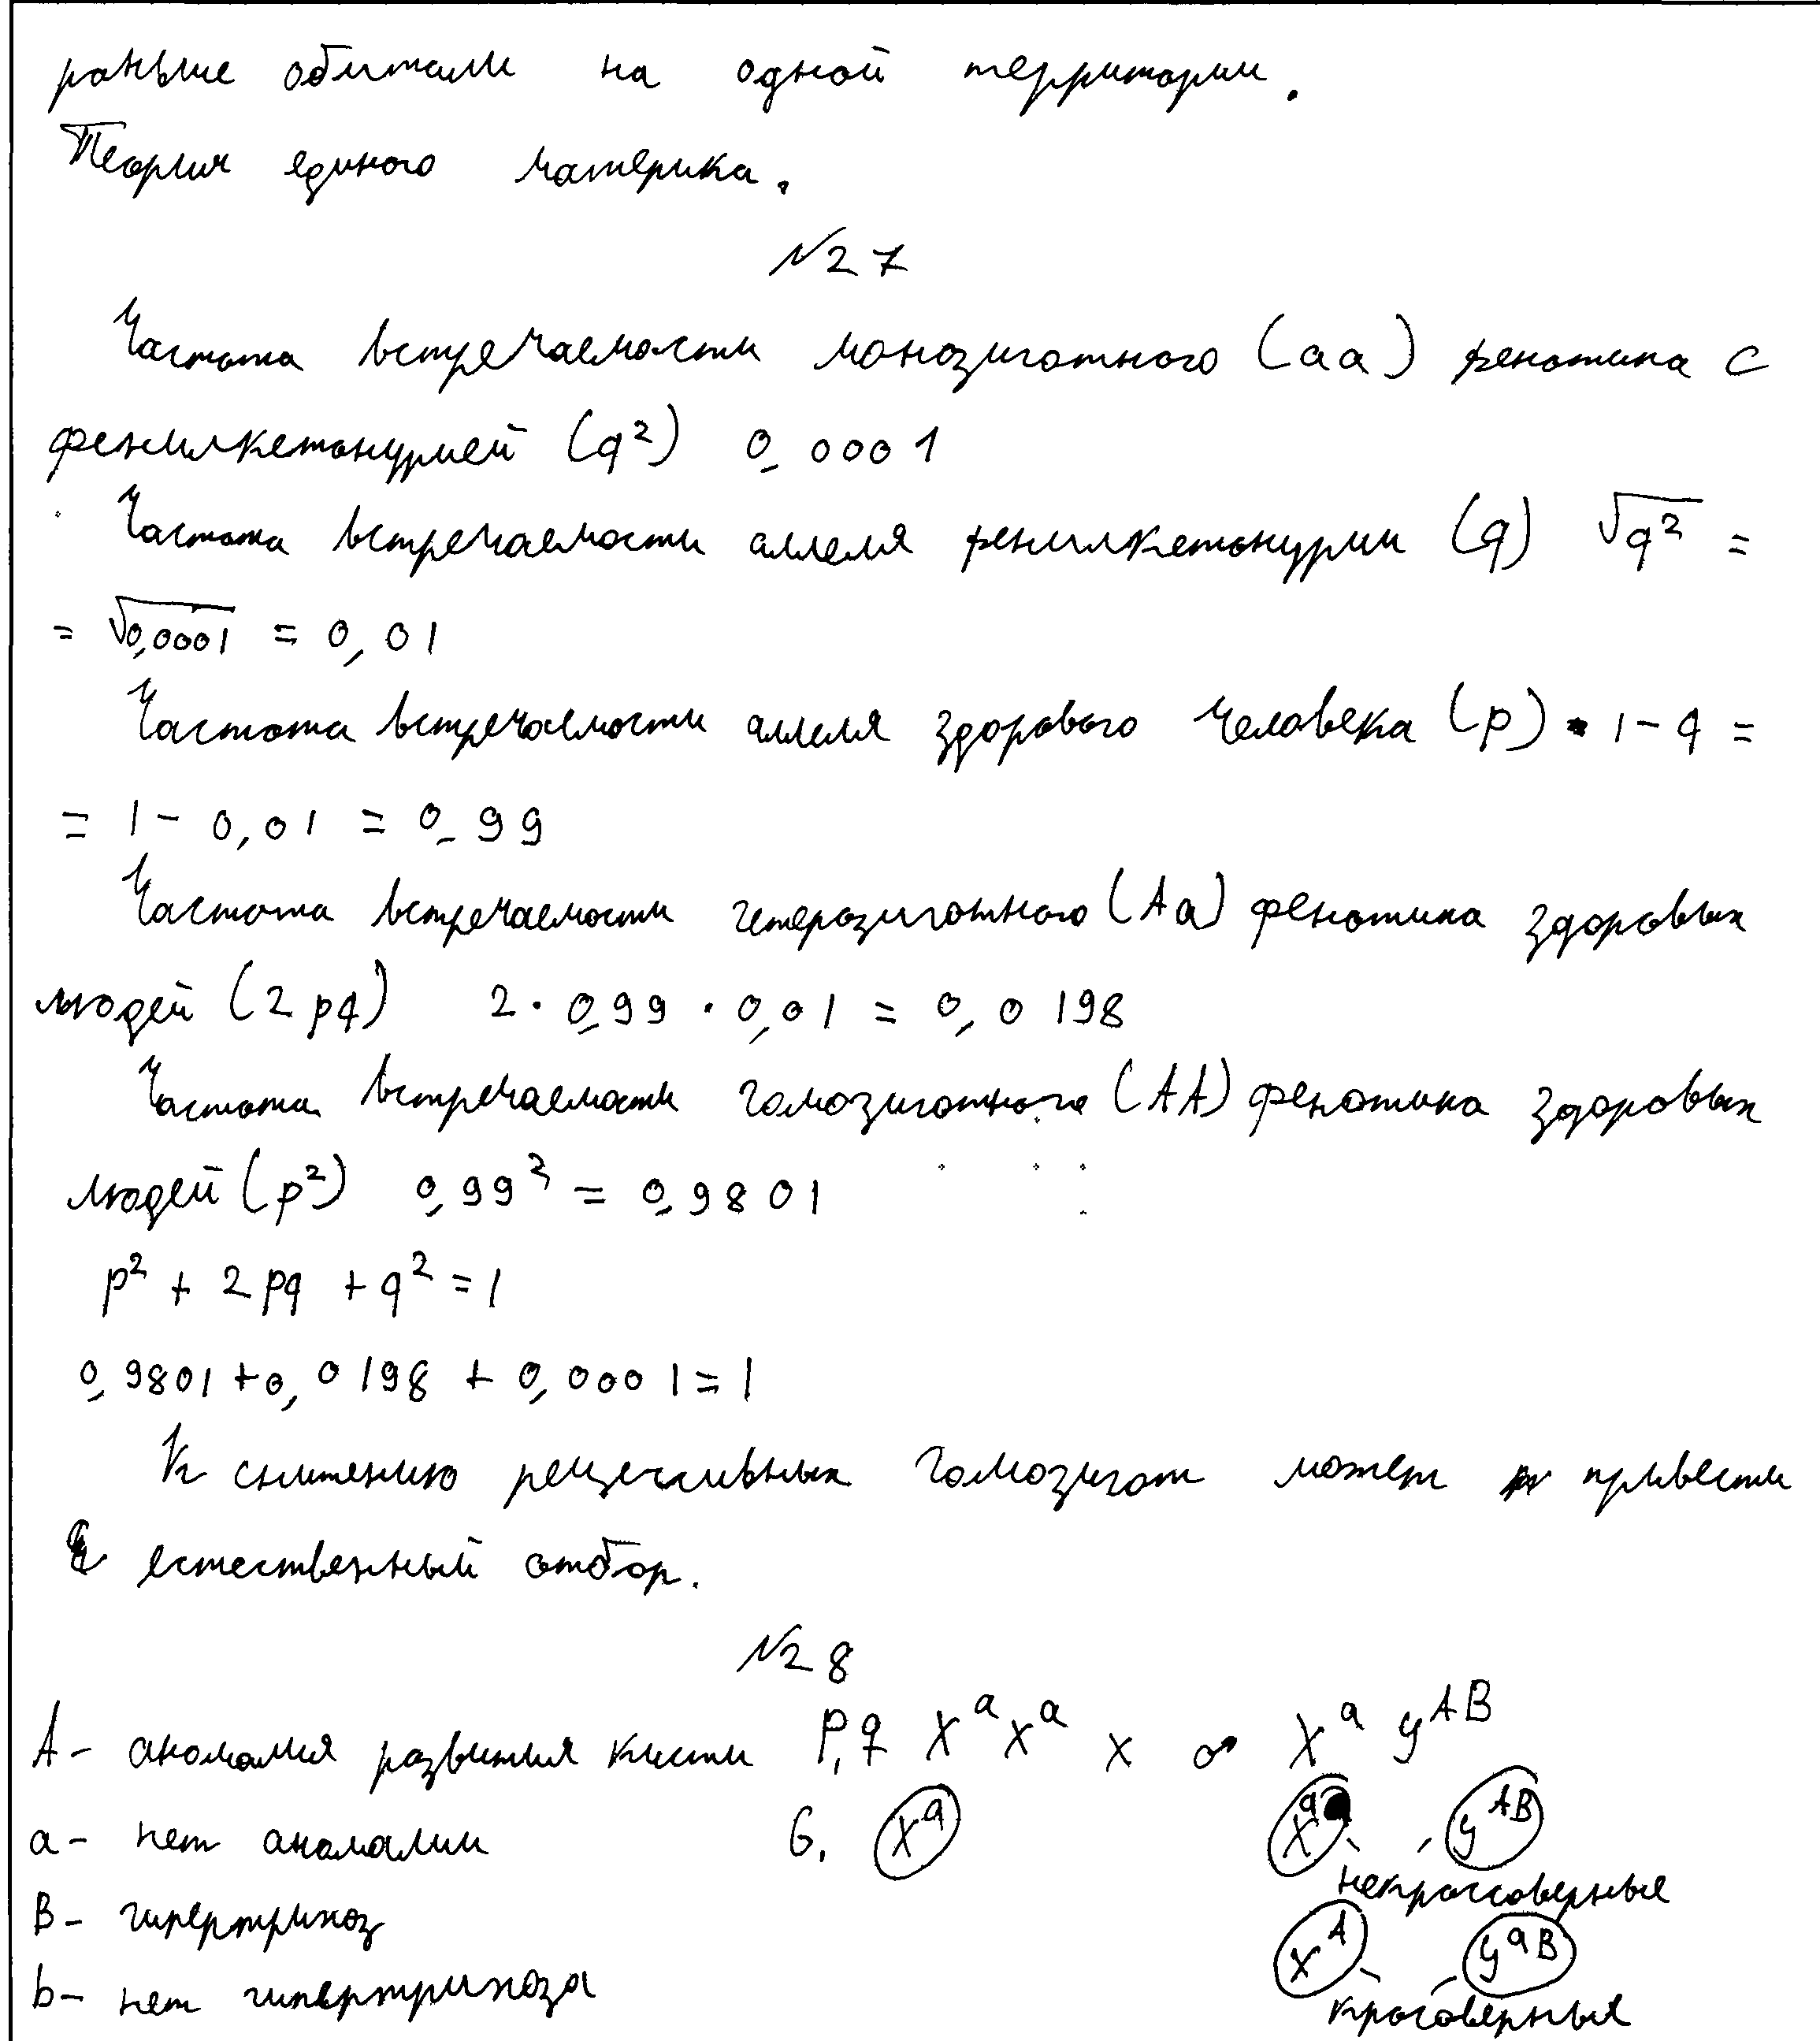 раньше обитали на одной территории.
Теория единого материка.
№27
Частота встречаемости монозиготного (аа) фенотипа с
фенилкетонурией (q²) 0,0001
Частота встречаемости аллеля фенилкетонурии (q) √q² =
= √0,0001 = 0,01
Частота встречаемости аллеля здорового человека (p) 1-q =
= 1 - 0,01 = 0,99
Частота встречаемости гетерозиготного (Аа) фенотипа здоровых
людей (2pq) 2·0,99·0,01 = 0,0198
Частота встречаемости гомозиготного (АА) фенотипа здоровых
людей (p²) 0,99² = 0,9801
p² + 2pq + q² = 1
0,9801 + 0,0198 + 0,0001 = 1
К снижению рецессивных гомозигот может привести
естественный отбор.
№28
А - аномалия развития кисти P. ♀ XᵃXᵃ x ♂ XᵃYᴬᴮ
а - нет аномалии G. Xᵃ Xᵃ Yᴬᴮ
некроссоверные
В - гипертрихоз Xᴬ Yᵃᴮ
b - нет гипертрихоза кросоверные